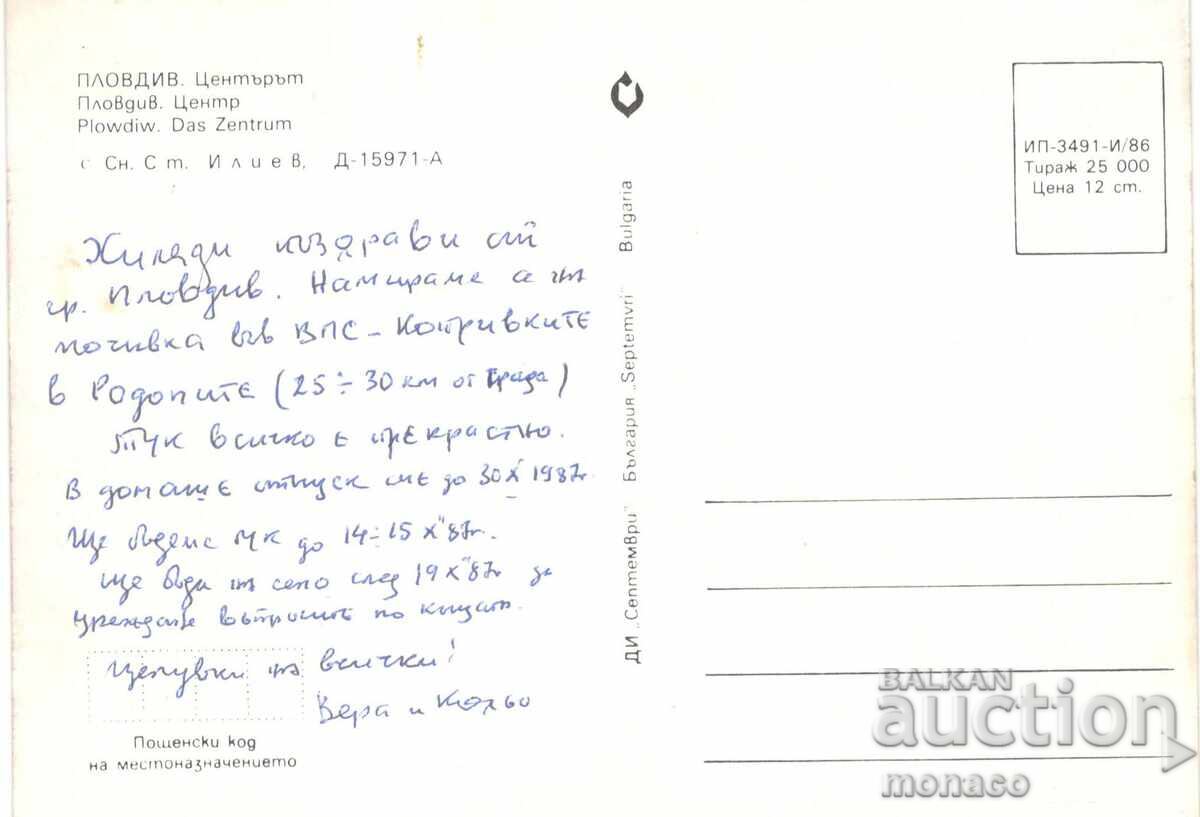 ПЛОВДИВ. Центърът
Пловдив. Центр
Plowdiw. Das Zentrum
с Сн. Ст. Илиев, Д-15971-А
Хиляди поздрави от
гр. Пловдив. Намираме се на
почивка във ВПС - Копривките
в Родопите (25 ÷ 30 км от града)
Тук всичко е прекрасно.
В домаш отпуск сме до 30 X 1987г
Ще бъдем тук до 14 ÷ 15 X 87г.
Ще бъда на село след 19 X 87г за
уреждане въпросите по къщата.
Целувки на всички!
Вера и Кольо
Пощенски код
на местоназначението
ДИ „Септември" България „Septemvri" Bulgaria
ИП-3491-И/86
Тираж 25 000
Цена 12 ст.
BALKAN
auction
monaco